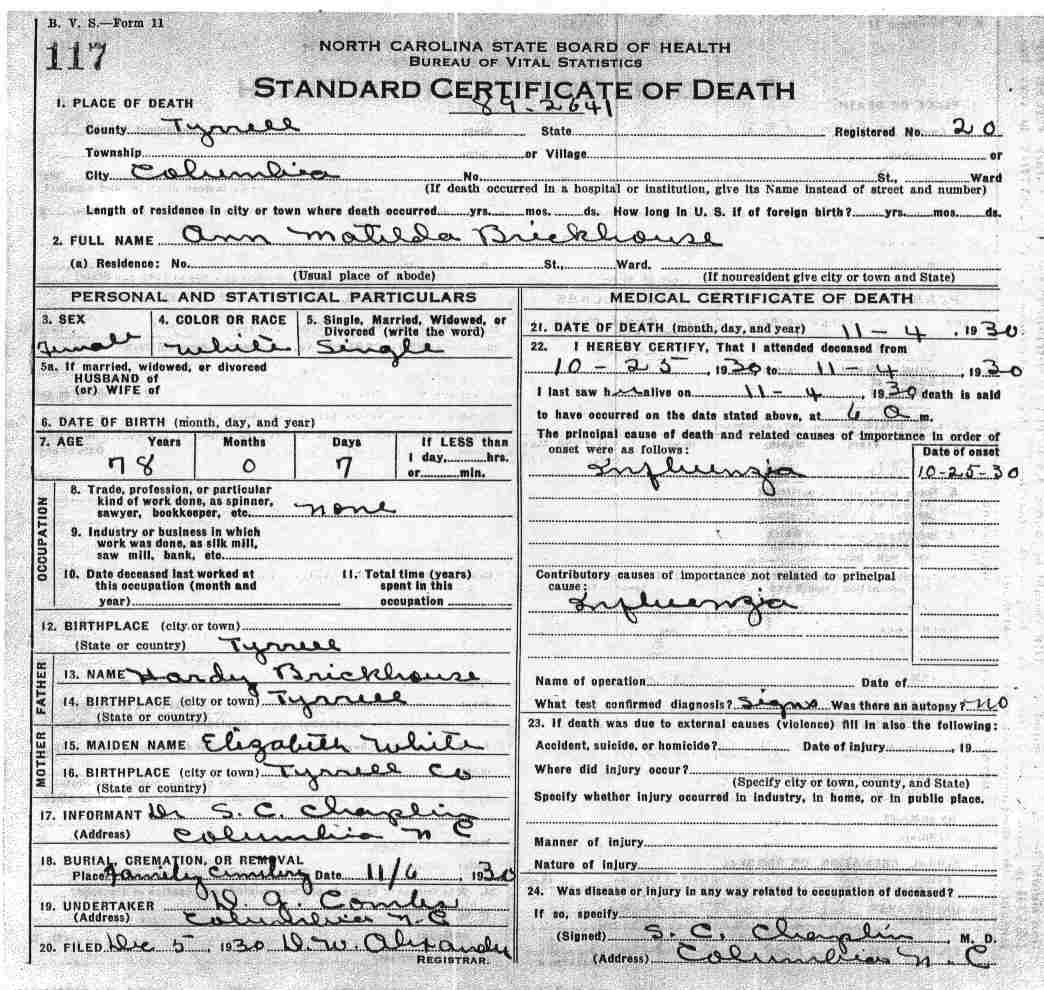 B. V. S.—Form 11
117
NORTH CAROLINA STATE BOARD OF HEALTH
BUREAU OF VITAL STATISTICS
STANDARD CERTIFICATE OF DEATH
89-2641
1. PLACE OF DEATH
County Tyrrell State Registered No. 20
Township or Village or
City Columbia No. St., Ward
(If death occurred in a hospital or institution, give its Name instead of street and number)
Length of residence in city or town where death occurred yrs. mos. ds. How long in U. S. if of foreign birth? yrs. mos. ds.
2. FULL NAME Ann Matilda Brickhouse
(a) Residence: No. St., Ward.
(Usual place of abode) (If nonresident give city or town and State)
PERSONAL AND STATISTICAL PARTICULARS
3. SEX 4. COLOR OR RACE 5. Single, Married, Widowed, or
Divorced (write the word)
Female White Single
5a. If married, widowed, or divorced
HUSBAND of
(or) WIFE of
6. DATE OF BIRTH (month, day, and year)
7. AGE Years Months Days If LESS than
1 day, hrs.
78 0 7 or min.
OCCUPATION
8. Trade, profession, or particular
kind of work done, as spinner,
sawyer, bookkeeper, etc. none
9. Industry or business in which
work was done, as silk mill,
saw mill, bank, etc.
10. Date deceased last worked at
this occupation (month and
year)
11. Total time (years)
spent in this
occupation
12. BIRTHPLACE (city or town)
(State or country) Tyrrell
FATHER
13. NAME Hardy Brickhouse
14. BIRTHPLACE (city or town) Tyrrell
(State or country)
MOTHER
15. MAIDEN NAME Elizabeth White
16. BIRTHPLACE (city or town) Tyrrell Co
(State or country)
17. INFORMANT Dr S. C. Chaplin
(Address) Columbia N C
18. BURIAL, CREMATION, OR REMOVAL
Place Family Cemetery Date 11/6, 1930
19. UNDERTAKER D. G. Combs
(Address) Columbia N. C
20. FILED Dec 5, 1930 D. W. Alexander
REGISTRAR.
MEDICAL CERTIFICATE OF DEATH
21. DATE OF DEATH (month, day, and year) 11-4, 1930
22. I HEREBY CERTIFY, That I attended deceased from
10-25, 1930 to 11-4, 1930
I last saw her alive on 11-4, 1930 death is said
to have occurred on the date stated above, at 6 a m.
The principal cause of death and related causes of importance in order of
onset were as follows: Date of onset
Influenza 10-25-30
Contributory causes of importance not related to principal
cause:
Influenza
Name of operation Date of
What test confirmed diagnosis? Signs Was there an autopsy? No
23. If death was due to external causes (violence) fill in also the following:
Accident, suicide, or homicide? Date of injury, 19
Where did injury occur?
(Specify city or town, county, and State)
Specify whether injury occurred in industry, in home, or in public place.
Manner of injury
Nature of injury
24. Was disease or injury in any way related to occupation of deceased?
If so, specify
(Signed) S. C. Chaplin, M. D.
(Address) Columbia N. C